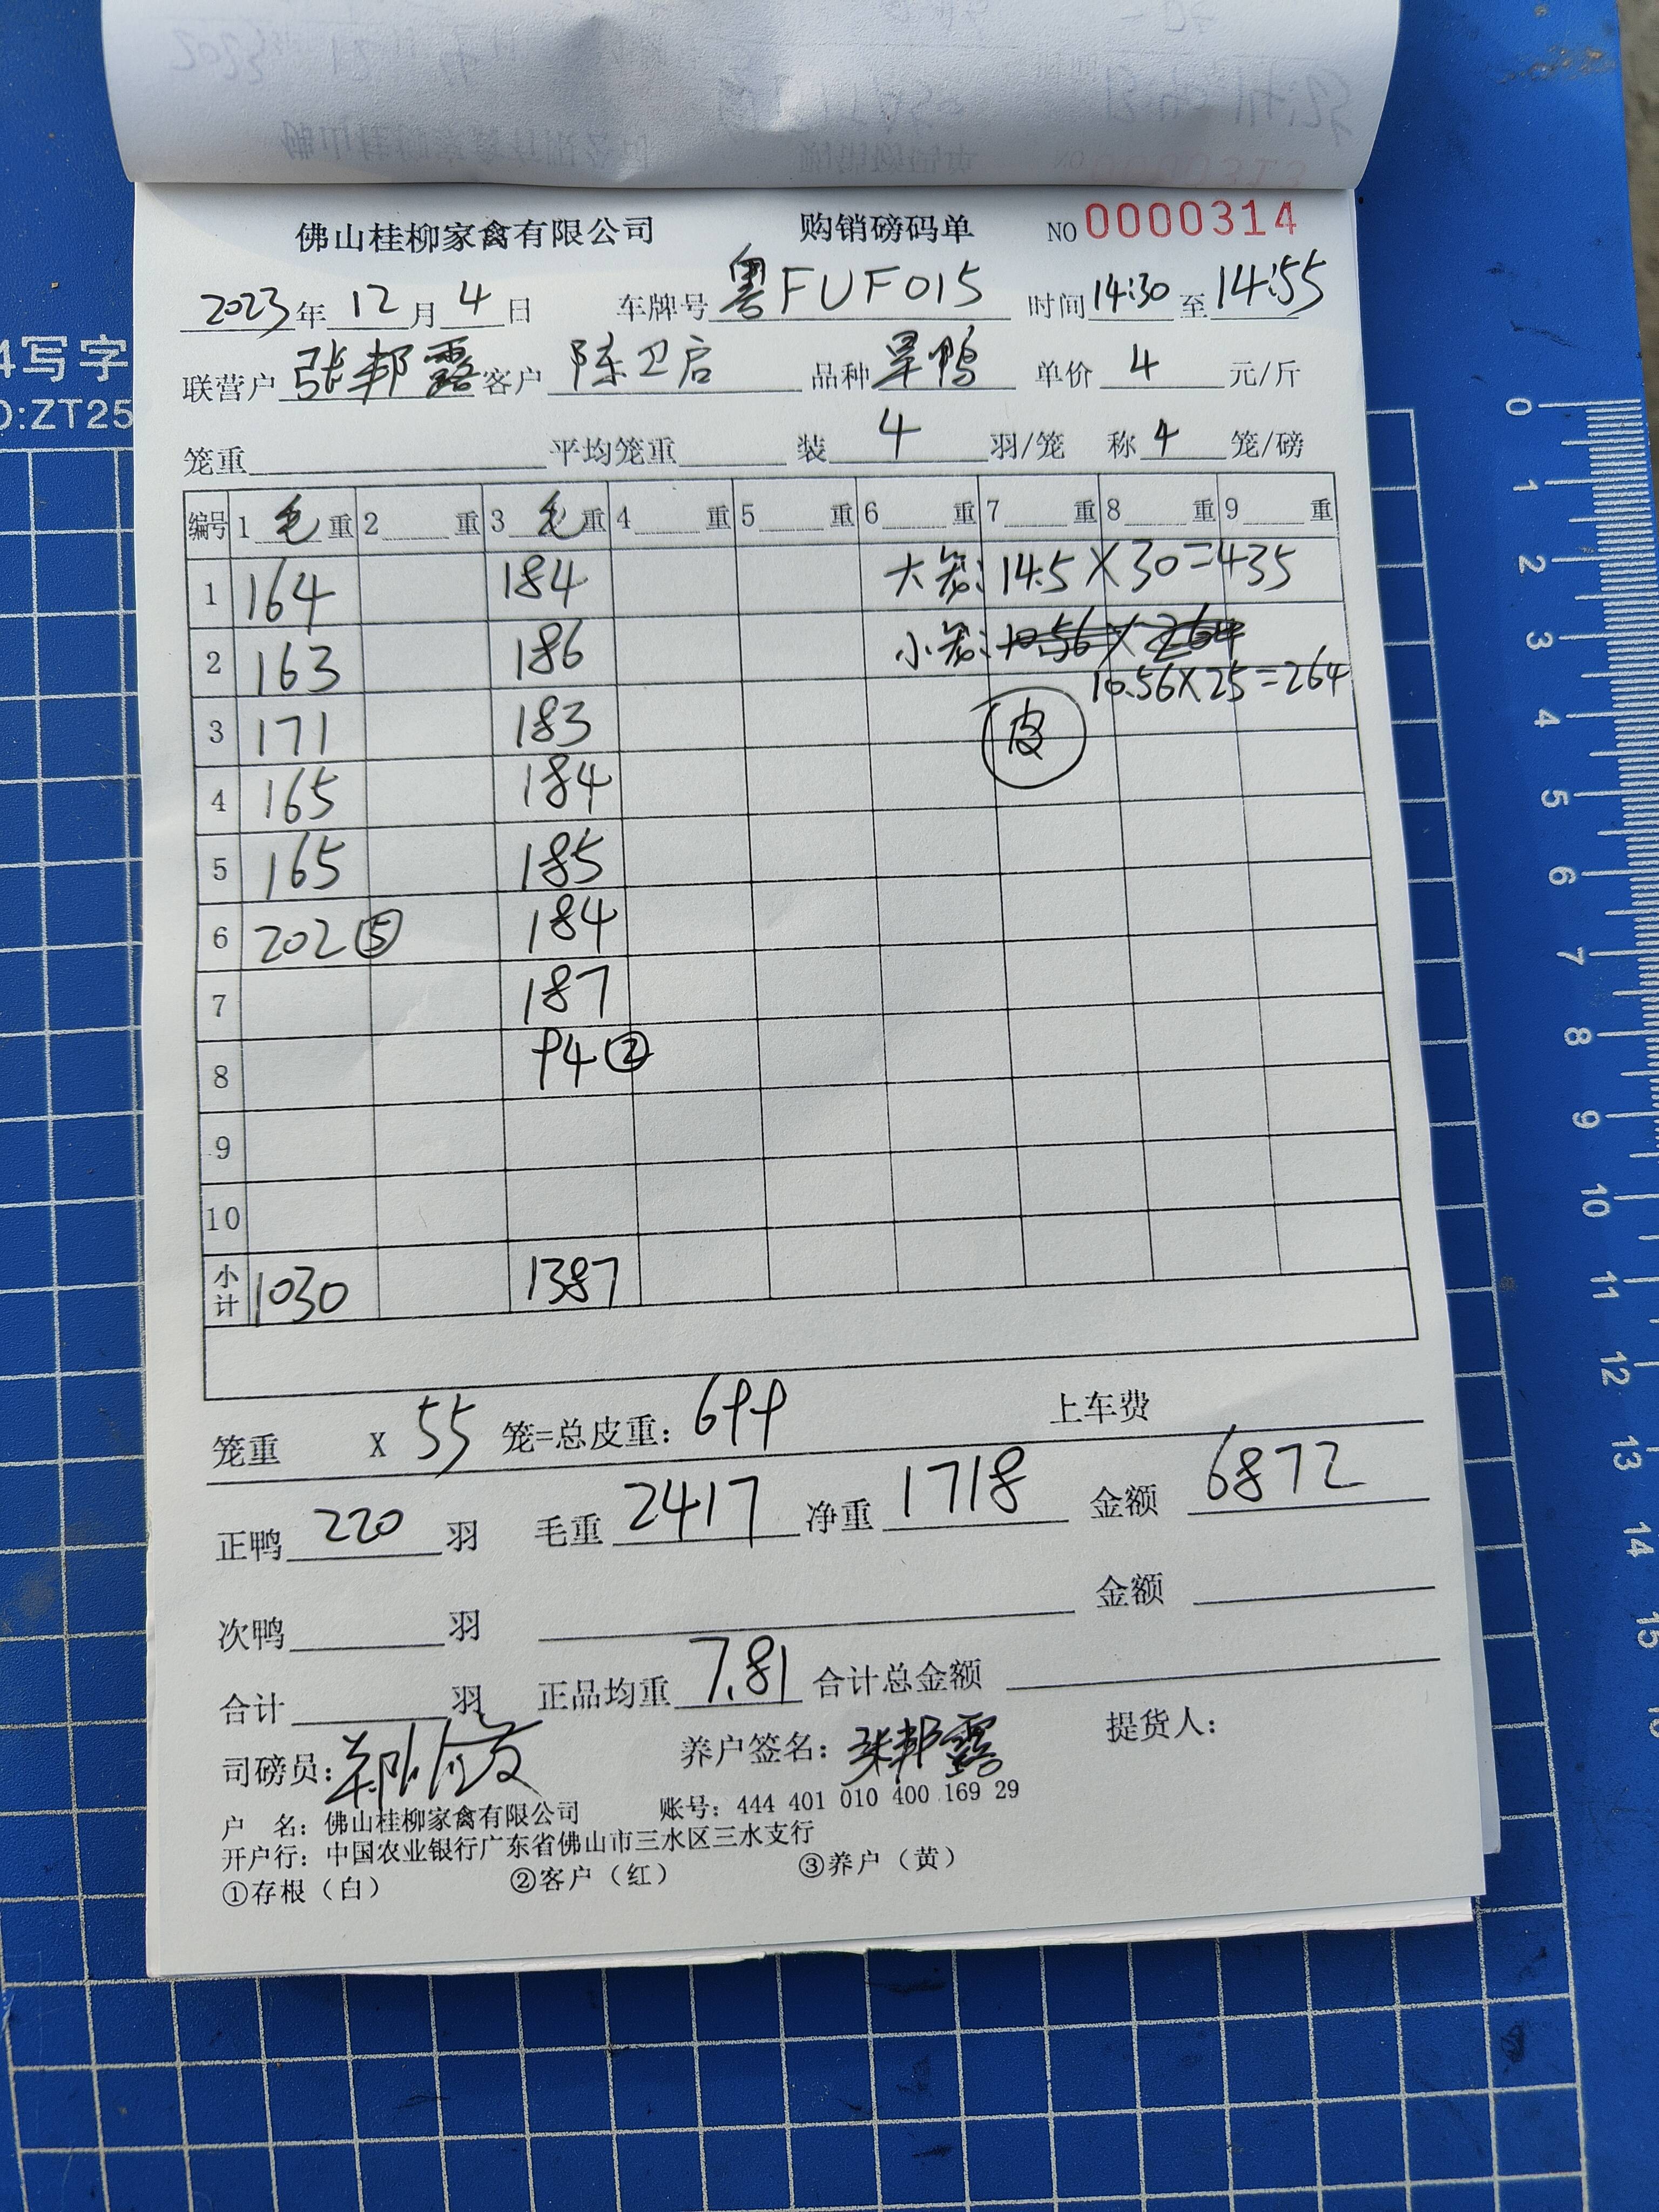 佛山桂柳家禽有限公司 购销磅码单 NO 0000314
2023年 12 月 4 日 车牌号 粤FUF015 时间 14:30 至 14:55
联营户 张邦露 客户 陈卫启 品种 旱鸭 单价 4 元/斤
笼重 平均笼重 装 4 羽/笼 称 4 笼/磅
编号 1 毛 重 2 重 3 毛 重 4 重 5 重 6 重 7 重 8 重 9 重
1 164 184 大笼: 14.5×30=435
2 163 186 小笼: 10.56×264
10.56×25=264
3 171 183 皮
4 165 184
5 165 185
6 202⑤ 184
7 187
8 94②
9
10
小计 1030 1387
笼重 X 55 笼=总皮重: 699 上车费
正鸭 220 羽 毛重 2417 净重 1718 金额 6872
次鸭 羽 金额
合计 羽 正品均重 7.81 合计总金额
司磅员: 养户签名: 张邦露 提货人:
户 名: 佛山桂柳家禽有限公司 账号: 444 401 010 400 169 29
开户行: 中国农业银行广东省佛山市三水区三水支行
①存根(白) ②客户(红) ③养户(黄)
4写字
D:ZT25
0 1 2 3 4 5 6 7 8 9 10 11 12 13 14 15